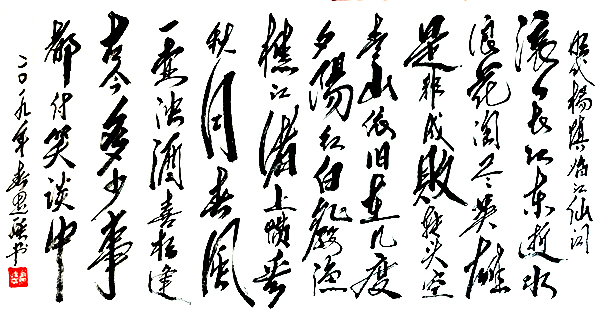 明代杨慎临江仙词
滚滚长江东逝水
浪花淘尽英雄
是非成败转头空
青山依旧在几度
夕陽红白髮渔
樵江渚上惯看
秋月春风
一壶浊酒喜相逢
古今多少事
都付笑谈中
二〇一九年春